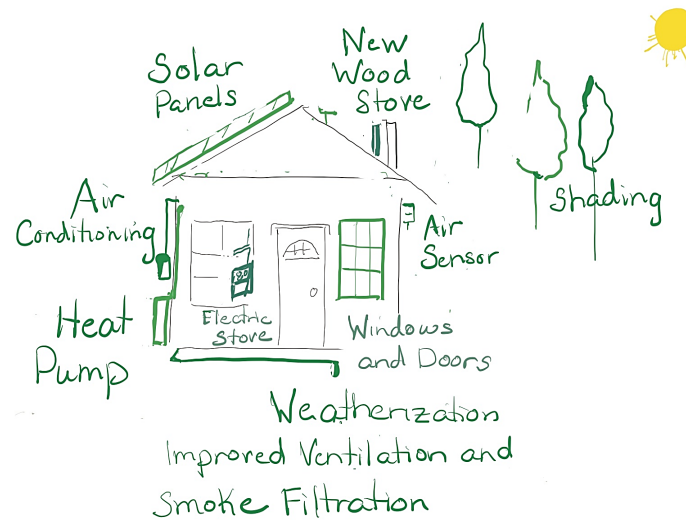 Solar
Panels
New
Wood
Stove
Shading
Air
Conditioning
Air
Sensor
Heat
Pump
Electric
Stove
Windows
and Doors
Weatherization
Improved Ventilation and
Smoke Filtration